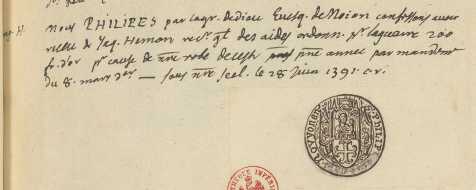 Nous PHILIPES par la gr. de dieu Evesq. de Noion confessons avoir
receu de Jaq. Hemon rec. gñl des aides ordonn. pr la guerre 200
fr. d'or pr cause de nre robe de cest pñe année par mandem
du 8. mars der — sous nre seel. le 28 Juin 1391. c. r.
NOVYONEN PHILIP
THÈQUE IMPERI